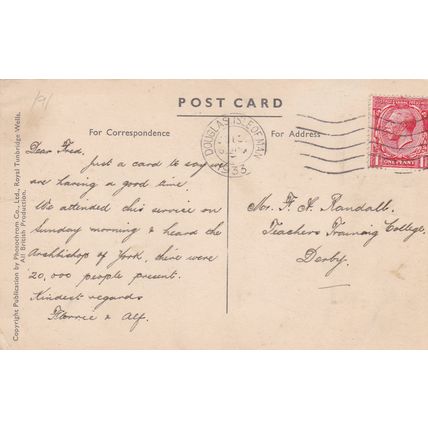 /9/
POST CARD
For Correspondence
For Address
DOUGLAS ISLE OF MAN
1933
ONE PENNY
Dear Fred,
Just a card to say we
are having a good time.
We attended this service on
Sunday morning & heard the
Archbishop of York, there were
20,000 people present.
Kindest regards
Florrie & Alf.
Mr. F. H. Randall.
Teachers Training College.
Derby.
Copyright Publication by Photochrom Co. Ltd., Royal Tunbridge Wells.
All British Production.